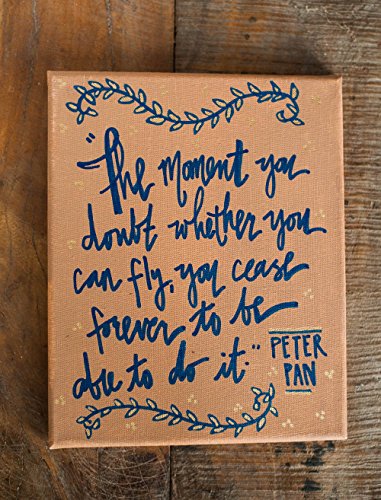 "The moment you
doubt whether you
can fly, you cease
forever to be
able to do it."
PETER
PAN